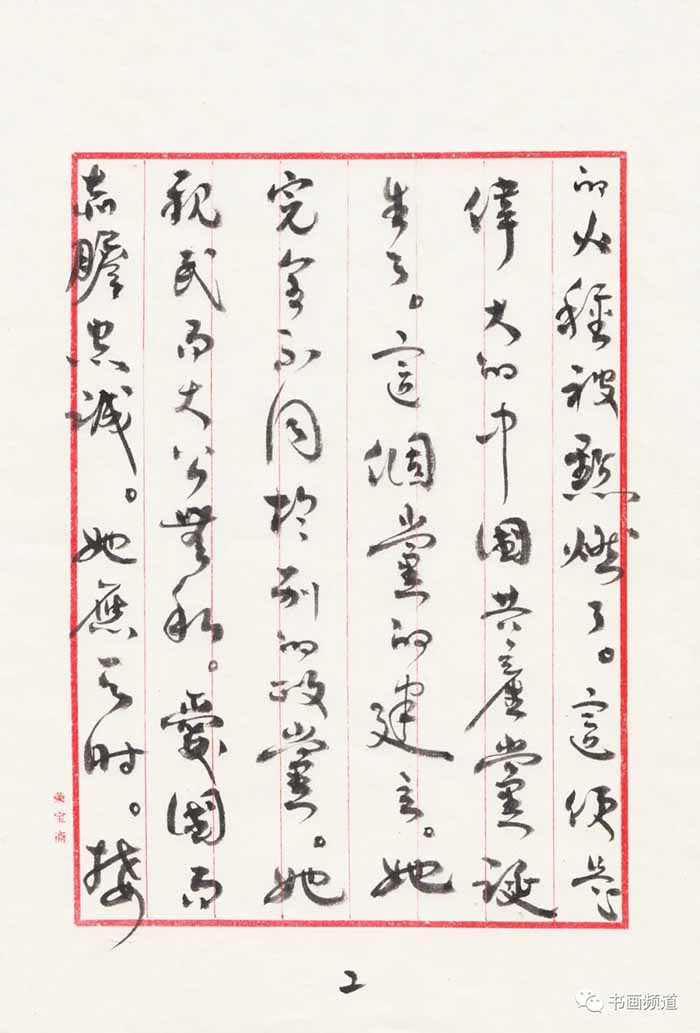 的火種被點燃了。這便是
偉大的中國共產黨誕
生了。這個黨的建立。她
完全不同於別的政黨。她
親民而大公無私。愛國而
赤膽忠誠。她應天时。接
榮宝齋
2
书画频道